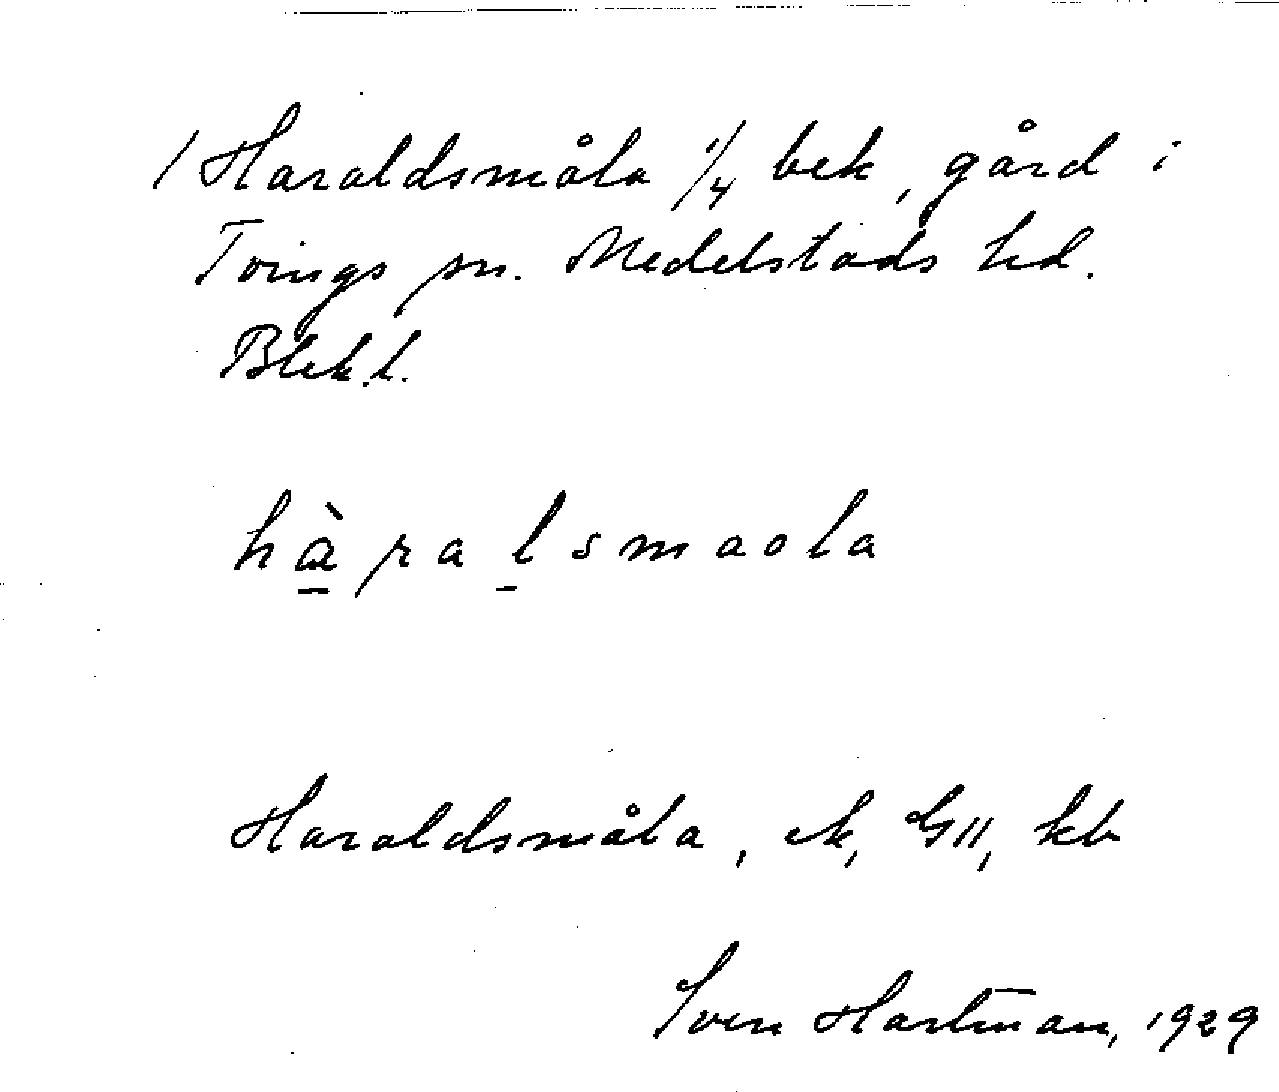 / Haraldsmåla 1/4 bek, gård i
Tvings sn. Medelstads hd.
Blek.l.
hàralsmaola
Haraldsmåla, ek, GII, kb
Sven Hartman, 1929